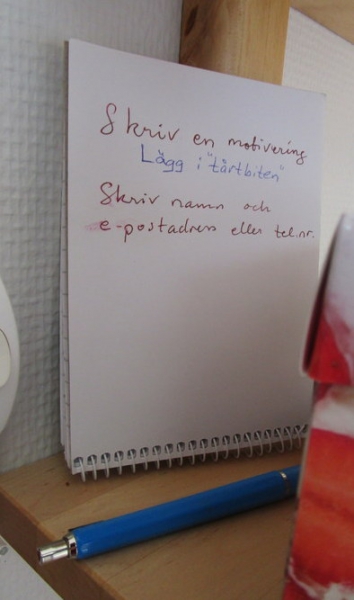 Skriv en motivering
Lägg i "tårtbiten"
Skriv namn och
e-postadress eller tel.nr.